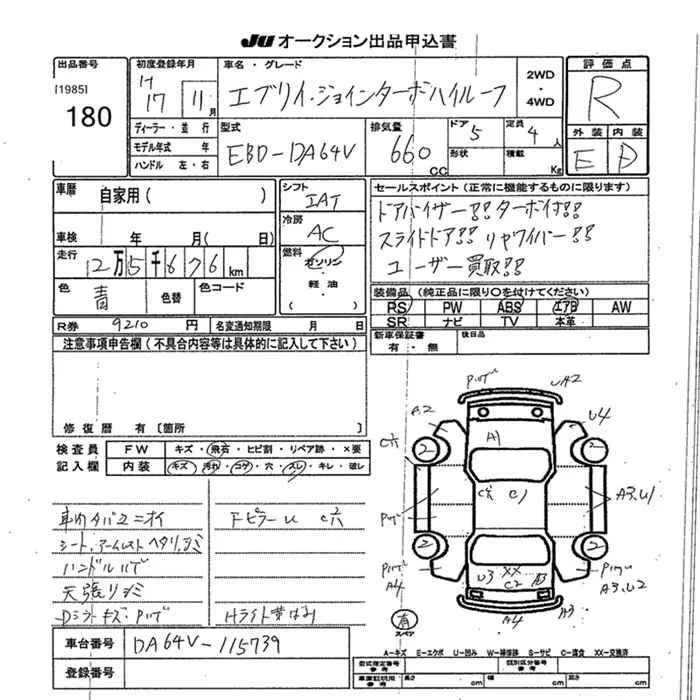 JU オークション出品申込書
出品番号 初度登録年月 車名・グレード 2WD・4WD 評価点
[1985] 180
H 17 11月 エブリイ・ジョインターボハイルーフ R
ディーラー・並行 型式 排気量 ドア 5 定員 4人 外装 内装
モデル年式 年 EBD-DA64V 660cc 形状 積載 Kg E D
ハンドル 左・右
車歴 自家用( ) シフト IAT セールスポイント(正常に機能するものに限ります)
冷房 AC ドアバイザー!! ターボ付!!
車検 年 月( 日) スライドドア!! リヤワイパー!!
走行 12万5千676km 燃料 ガソリン・軽油・( ) ユーザー買取!!
色 青 色替 色コード 装備品(純正品に限り○を付けてください)
RS PW ABS エアB AW
SR ナビ TV 本革
R券 9210円 名変通知期限 月 日 新車保証書 有・無 後日品
注意事項申告欄(不具合内容等は具体的に記入して下さい)
修復歴 有〔箇所 〕
検査員 FW キズ・飛石・ヒビ割・リペア跡・×要
記入欄 内装 キズ・汚れ・コゲ・穴・スレ・キレ・破レ
車内タバコニオイ FピラーU
シート、アームレストヘタリ、
ハンドルハゲ
天張リシミ
キズ・ハゲ Hライト
A2 UA2 U4
A1
C1
2 2
2 2
A3、U1
A4 U3 XX C2 A3、U2
A4 A3
有 スペア
車台番号 DA64V-115739
A-キズ E-エクボ U-凹み W-補修跡 S-サビ C-腐食 XX-交換済
登録番号
型式指定番号 参考 類別区分番号 参考
車庫証明用 参考 長さ cm 幅 cm 高さ cm